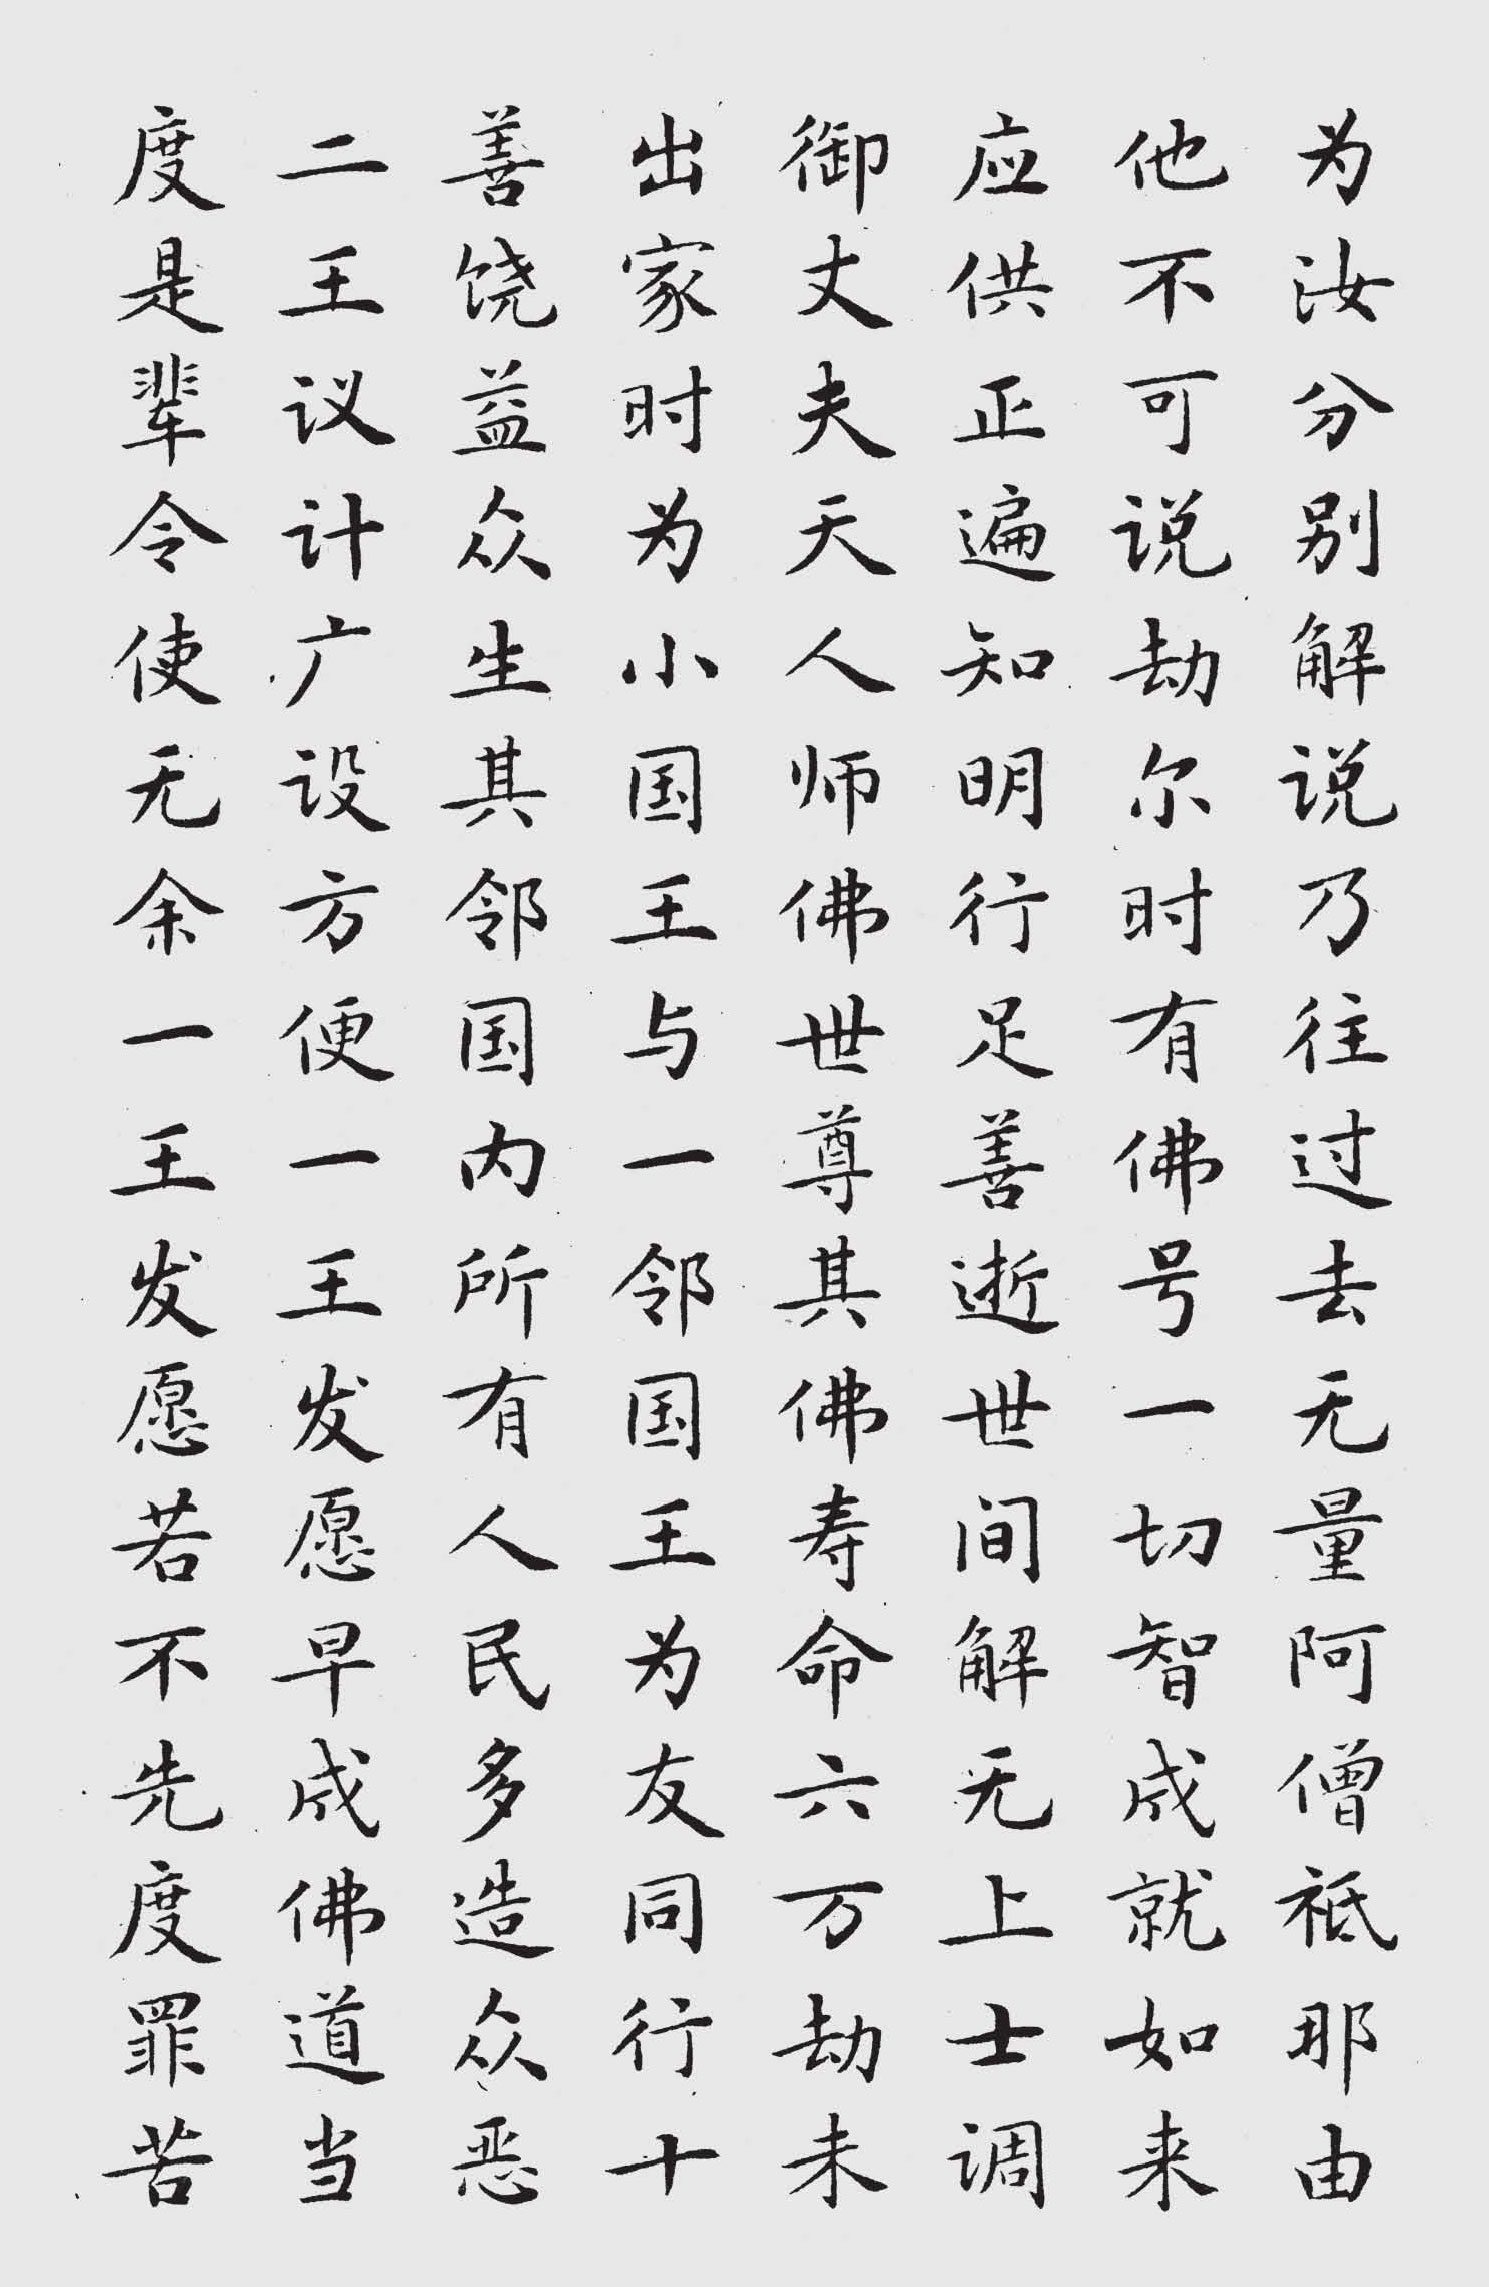 为汝分别解说乃往过去无量阿僧祇那由
他不可说劫尔时有佛号一切智成就如来
应供正遍知明行足善逝世间解无上士调
御丈夫天人师佛世尊其佛寿命六万劫未
出家时为小国王与一邻国王为友同行十
善饶益众生其邻国内所有人民多造众恶
二王议计广设方便一王发愿早成佛道当
度是辈令使无余一王发愿若不先度罪苦